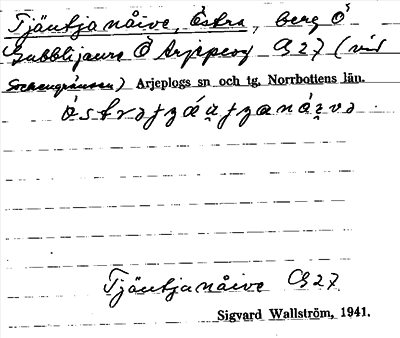 Tjäutjanåive, Östra, berg Ö
Gubblijaure Ö Arjeplog G 27 (vid
sockengränsen) Arjeplogs sn och tg, Norrbottens län.
Tjäutjanåive G 27
Sigvard Wallström, 1941.